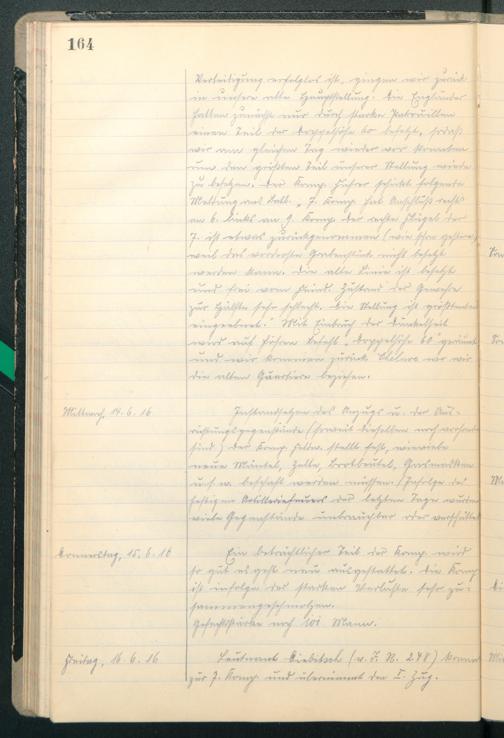 164
Verteidigung erfolglos ist, gingen wir zurück
in unsere alte Hauptstellung. Die Engländer
hatten zunächst nur durch starke Patrouillen
einen Teil der Doppelhöhe 60 besetzt, sodaß
wir am gleichen Tag wieder vor konnten
um den größten Teil unserer Stellung wieder
zu besetzen. Der Komp. Führer schickt folgende
Meldung ans Batl. „7. Komp. hat Anschluß rechts
an 6. links an 9. Komp. Der rechte Flügel der
7. ist etwas zurückgenommen (wie schon gestern)
weil das vorderste Grabenstück nicht besetzt
werden kann. Die alte Linie ist besetzt
und frei vom Feind. Zustand der Gewehre
zur Hälfte sehr schlecht. Die Stellung ist größtenteils
eingeebnet." Mit Einbruch der Dunkelheit
wird auf höheren Befehl „Doppelhöhe 60" geräumt
und wir kommen zurück wo wir
die alten Quartiere beziehen.
Mittwoch, 14.6.16 Instandsetzen des Anzugs u. der Aus-
rüstungsgegenstände (soweit dieselben noch vorhanden
sind) der Komp. Feldw. stellt fest, wieviele
neue Mäntel, Zelte, Brotbeutel, Gasmasken
u.s.w. beschafft werden müssen. Infolge des
heftigen Artilleriefeuers der letzten Tage wurden
viele Gegenstände unbrauchbar oder verschüttet
Donnerstag, 15.6.16 Ein beträchtlicher Teil der Komp. wird
so gut es geht neu ausgestattet. Die Komp.
ist infolge der starken Verluste sehr zu-
sammengeschmolzen.
Gefechtsstärke noch 101 Mann.
Freitag, 16.6.16 Leutnant Diebitsch (v. J. R. 248) kommt
zur 7. Komp. und übernimmt den I. Zug.